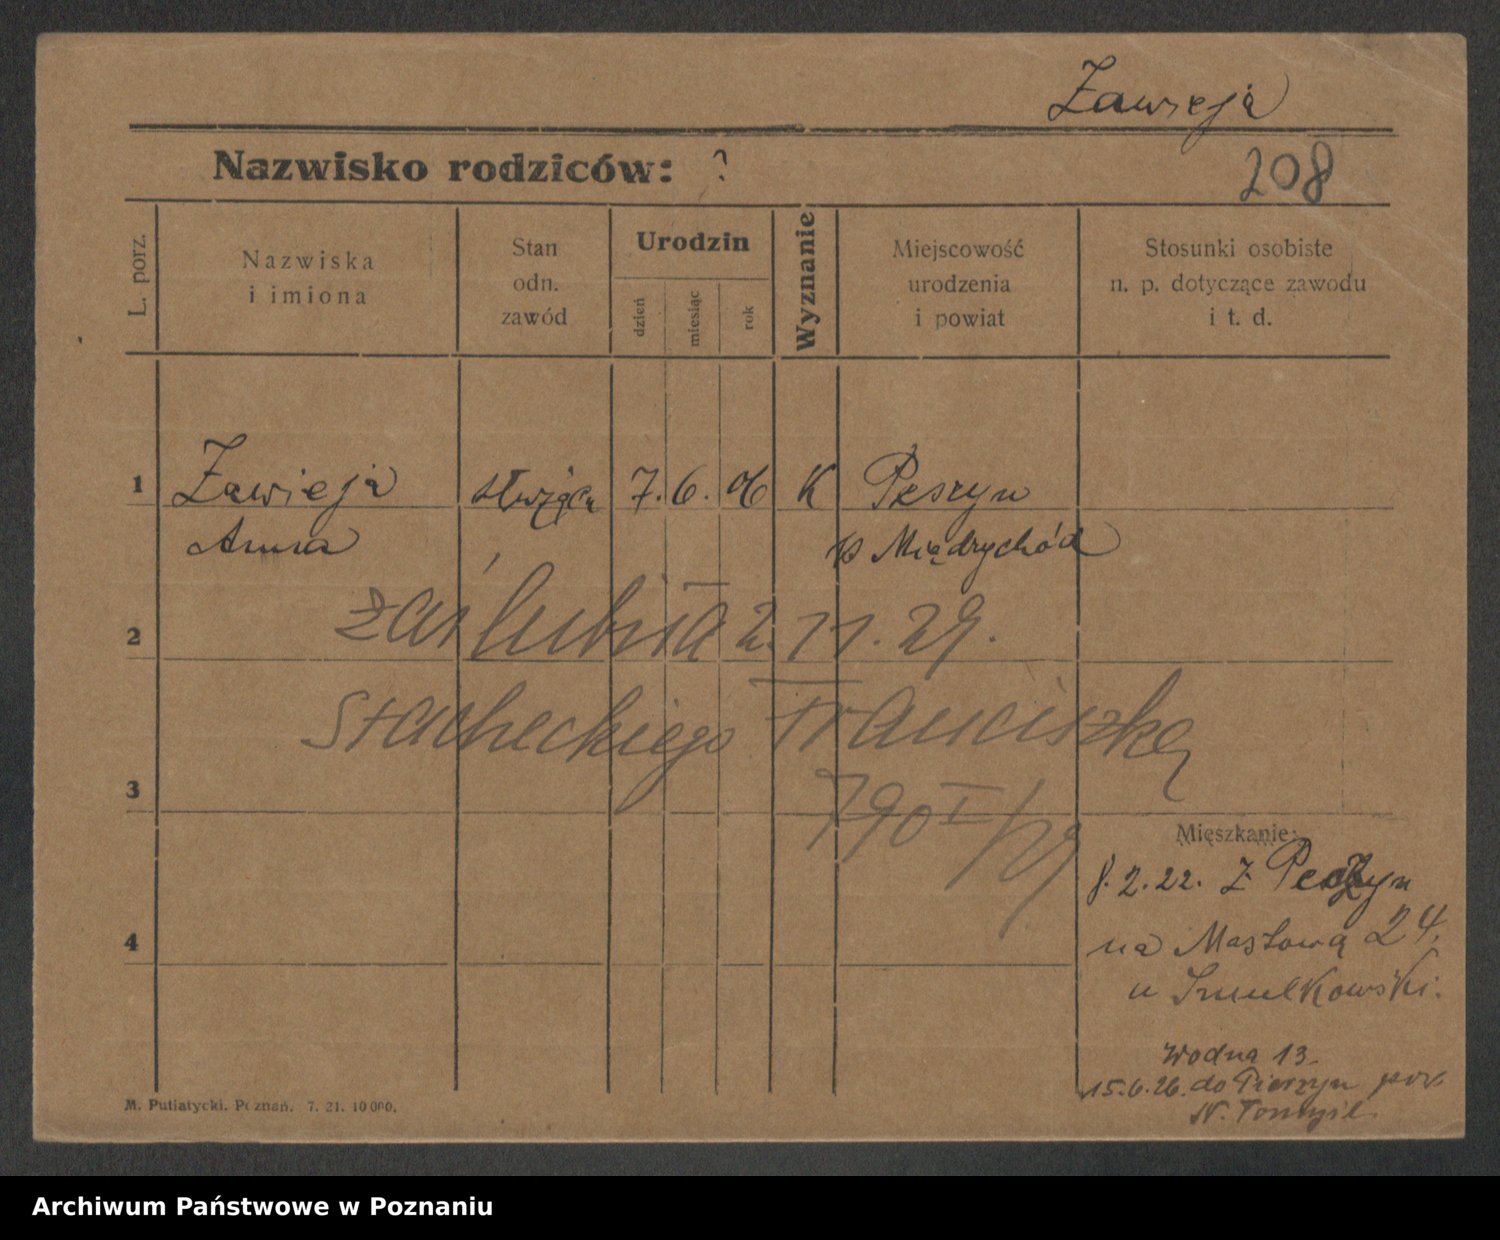 Zawieja
Nazwisko rodziców: ?
208
L. porz.
Nazwiska
i imiona
Stan
odn.
zawód
Urodzin
dzień
miesiąc
rok
Wyznanie
Miejscowość
urodzenia
i powiat
Stosunki osobiste
n. p. dotyczące zawodu
i t. d.
1 Zawieja służąca 7. 6. 06 K Peszyn
Anna p Miądzychód
2 zaślubiła 2.11.29.
Stacheckiego Franciszka
3
790 I/29
Mieszkanie:
8.2.22. Z
na Masłową 24.
4
u
Wodna 13.
15.6.26. do por.
N. Tomyśl
M. Putiatycki. Poznań. 7. 21. 10 000.
Archiwum Państwowe w Poznaniu